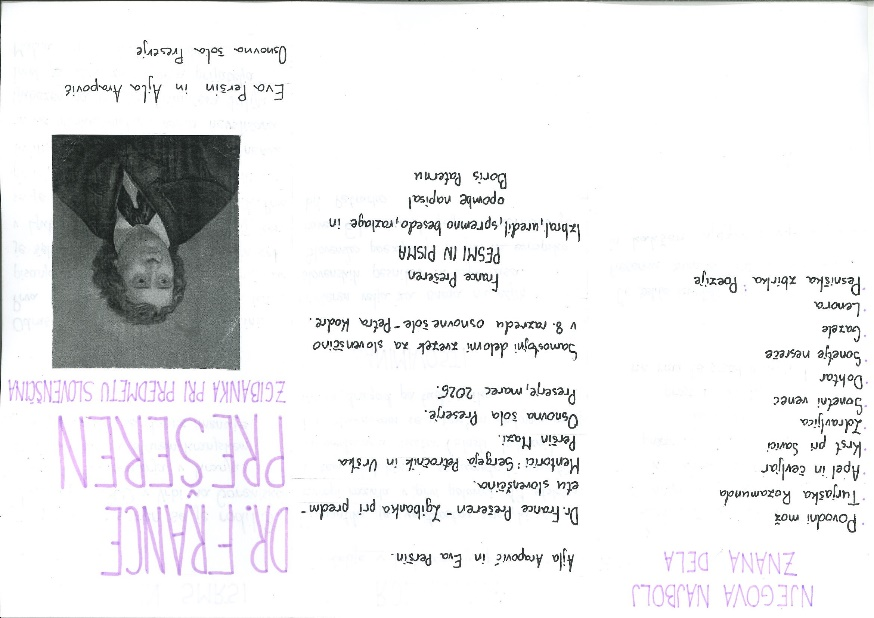 NJEGOVA NAJBOLJ
ZNANA DELA
· Povodni mož
· Turjaška Rozamunda
· Apel in čevljar
· Krst pri Savici
· Zdravljica
· Sonetni venec
· Dohtar
· Sonetje nesreče
· Gazele
· Lenora
· Pesniška zbirka: Poezije
Ajla Arapović in Eva Peršin.
Dr. France Prešeren - Zgibanka pri predm-
etu slovenščina.
Mentorici: Sergeja Petročnik in Urška
Peršin Mazi.
Osnovna šola Preserje.
Preserje, marec 2025.
Samostojni delovni zvezek za slovenščino
v 8. razredu osnovne šole - Petra Kodre.
France Prešeren
PESMI IN PISMA
Izbral, uredil, spremno besedo, razlage in
opombe napisal
Boris Paternu
DR. FRANCE
PREŠEREN
ZGIBANKA PRI PREDMETU SLOVENŠČINA
Eva Peršin in Ajla Arapović
Osnovna šola Preserje